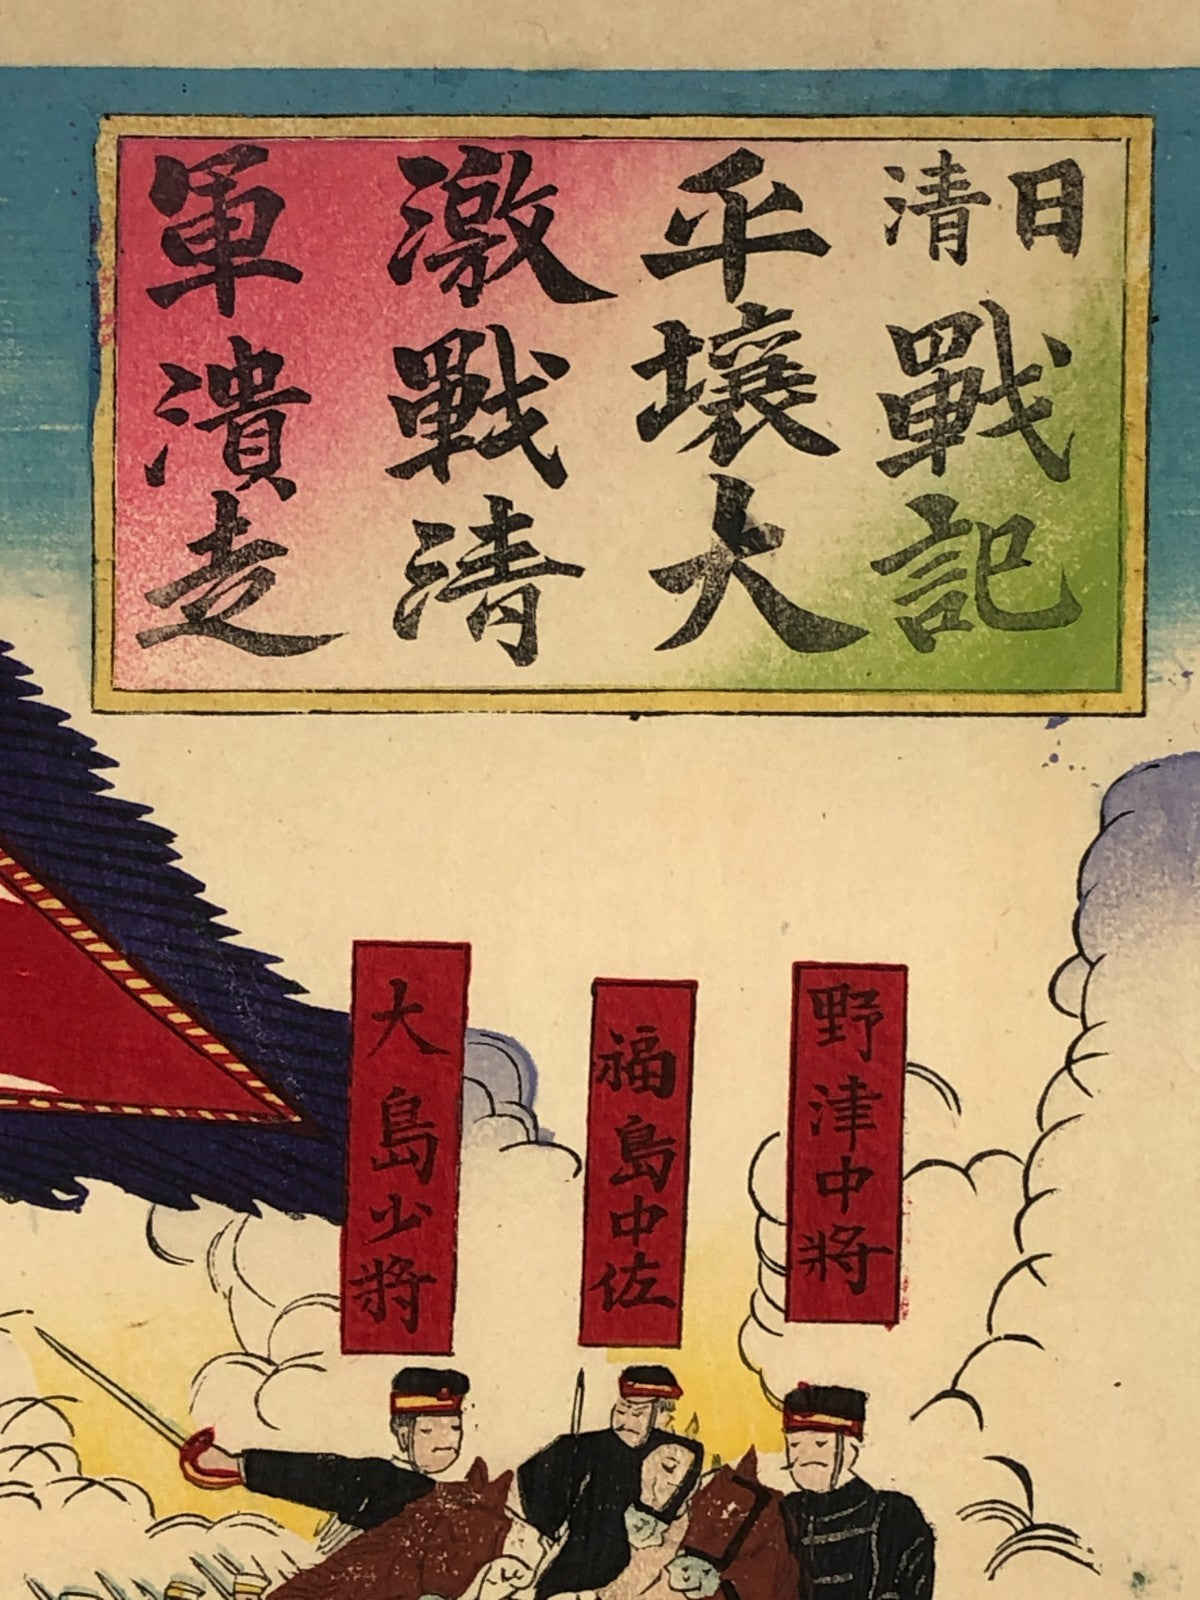 日清戰記
平壤大
激戰清
軍潰走
野津中將
福島中佐
大島少將